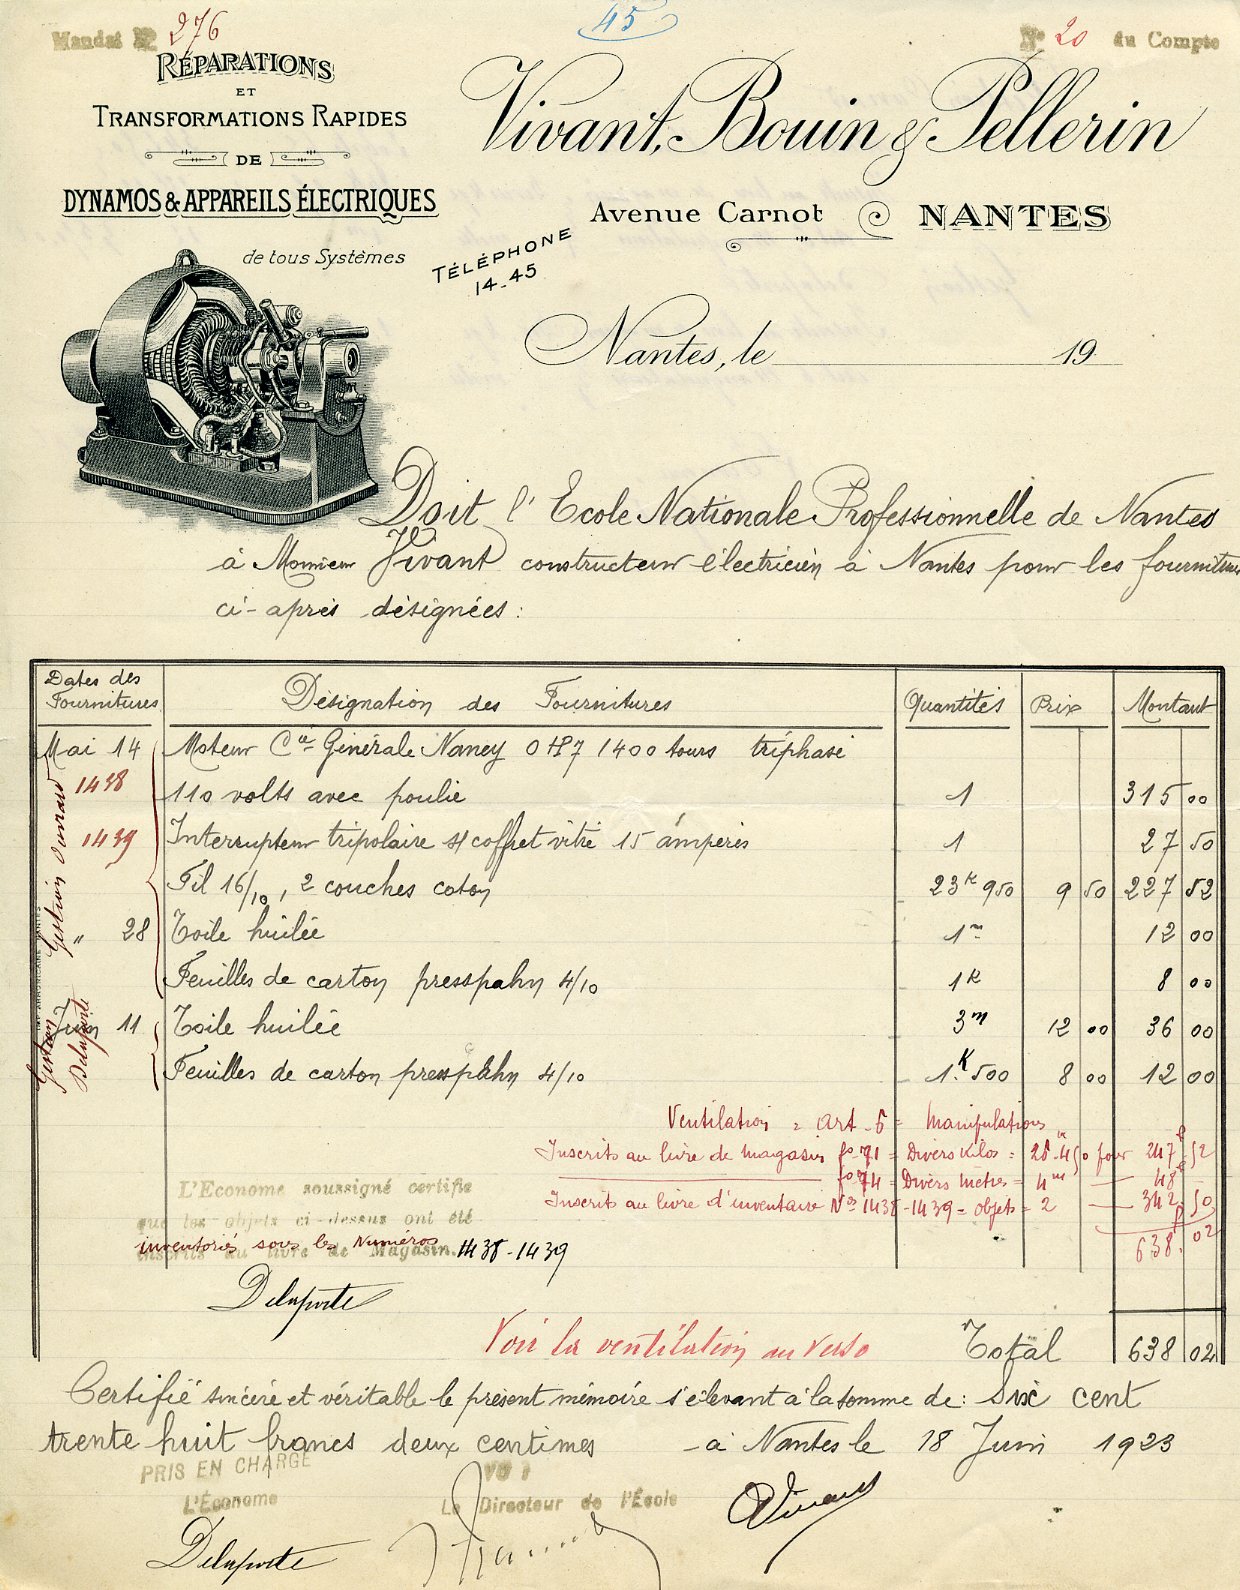 Mandat N° 276
45
N° 20 du Compte
RÉPARATIONS
ET
TRANSFORMATIONS RAPIDES
DE
DYNAMOS & APPAREILS ÉLECTRIQUES
de tous Systèmes
Vivant, Bouin & Pellerin
Avenue Carnot NANTES
TÉLÉPHONE
14-45
Nantes, le 19
Doit l'Ecole Nationale Professionnelle de Nantes
à Monsieur Vivant constructeur électricien à Nantes pour les fournitures
ci-après désignées :
Dates des Fournitures Désignation des Fournitures Quantités Prix Montant
Mai 14 Moteur Cie Générale Nancy 0HP7 1400 tours triphasé
1438 110 volts avec poulie 1 315 00
1439 Interrupteur tripolaire s/ coffret vitré 15 ampères 1 27 50
Fil 16/10, 2 couches coton 23k950 9 50 227 52
" 28 Toile huilée 1m 12 00
Feuilles de carton presspahn 4/10 1k 8 00
Juin 11 Toile huilée 3m 12 00 36 00
Feuilles de carton presspahn 4/10 1K500 8 00 12 00
Gestion Durand
Gestion Delaporte
Ventilation = art. 5 = Manipulations
Inscrits au livre de magasin fo 71 = Divers Kilos = 25k450 pour 247f52
fo 74 = Divers mètres = 4m — 48f
Inscrits au livre d'inventaire Nos 1438-1439 = objets = 2 — 342 50
638f.02
L'Econome soussigné certifie
que les objets ci-dessus ont été
inscrits au livre de Magasin.
inventoriés sous les Numéros 1438-1439
Delaporte
Voir la ventilation au verso
Total 638 02
Certifié sincère et véritable le présent mémoire s'élevant à la somme de : Six cent
trente huit francs deux centimes à Nantes le 18 Juin 1923
PRIS EN CHARGE
L'Économe
VU :
Le Directeur de l'École
Delaporte
Vivant